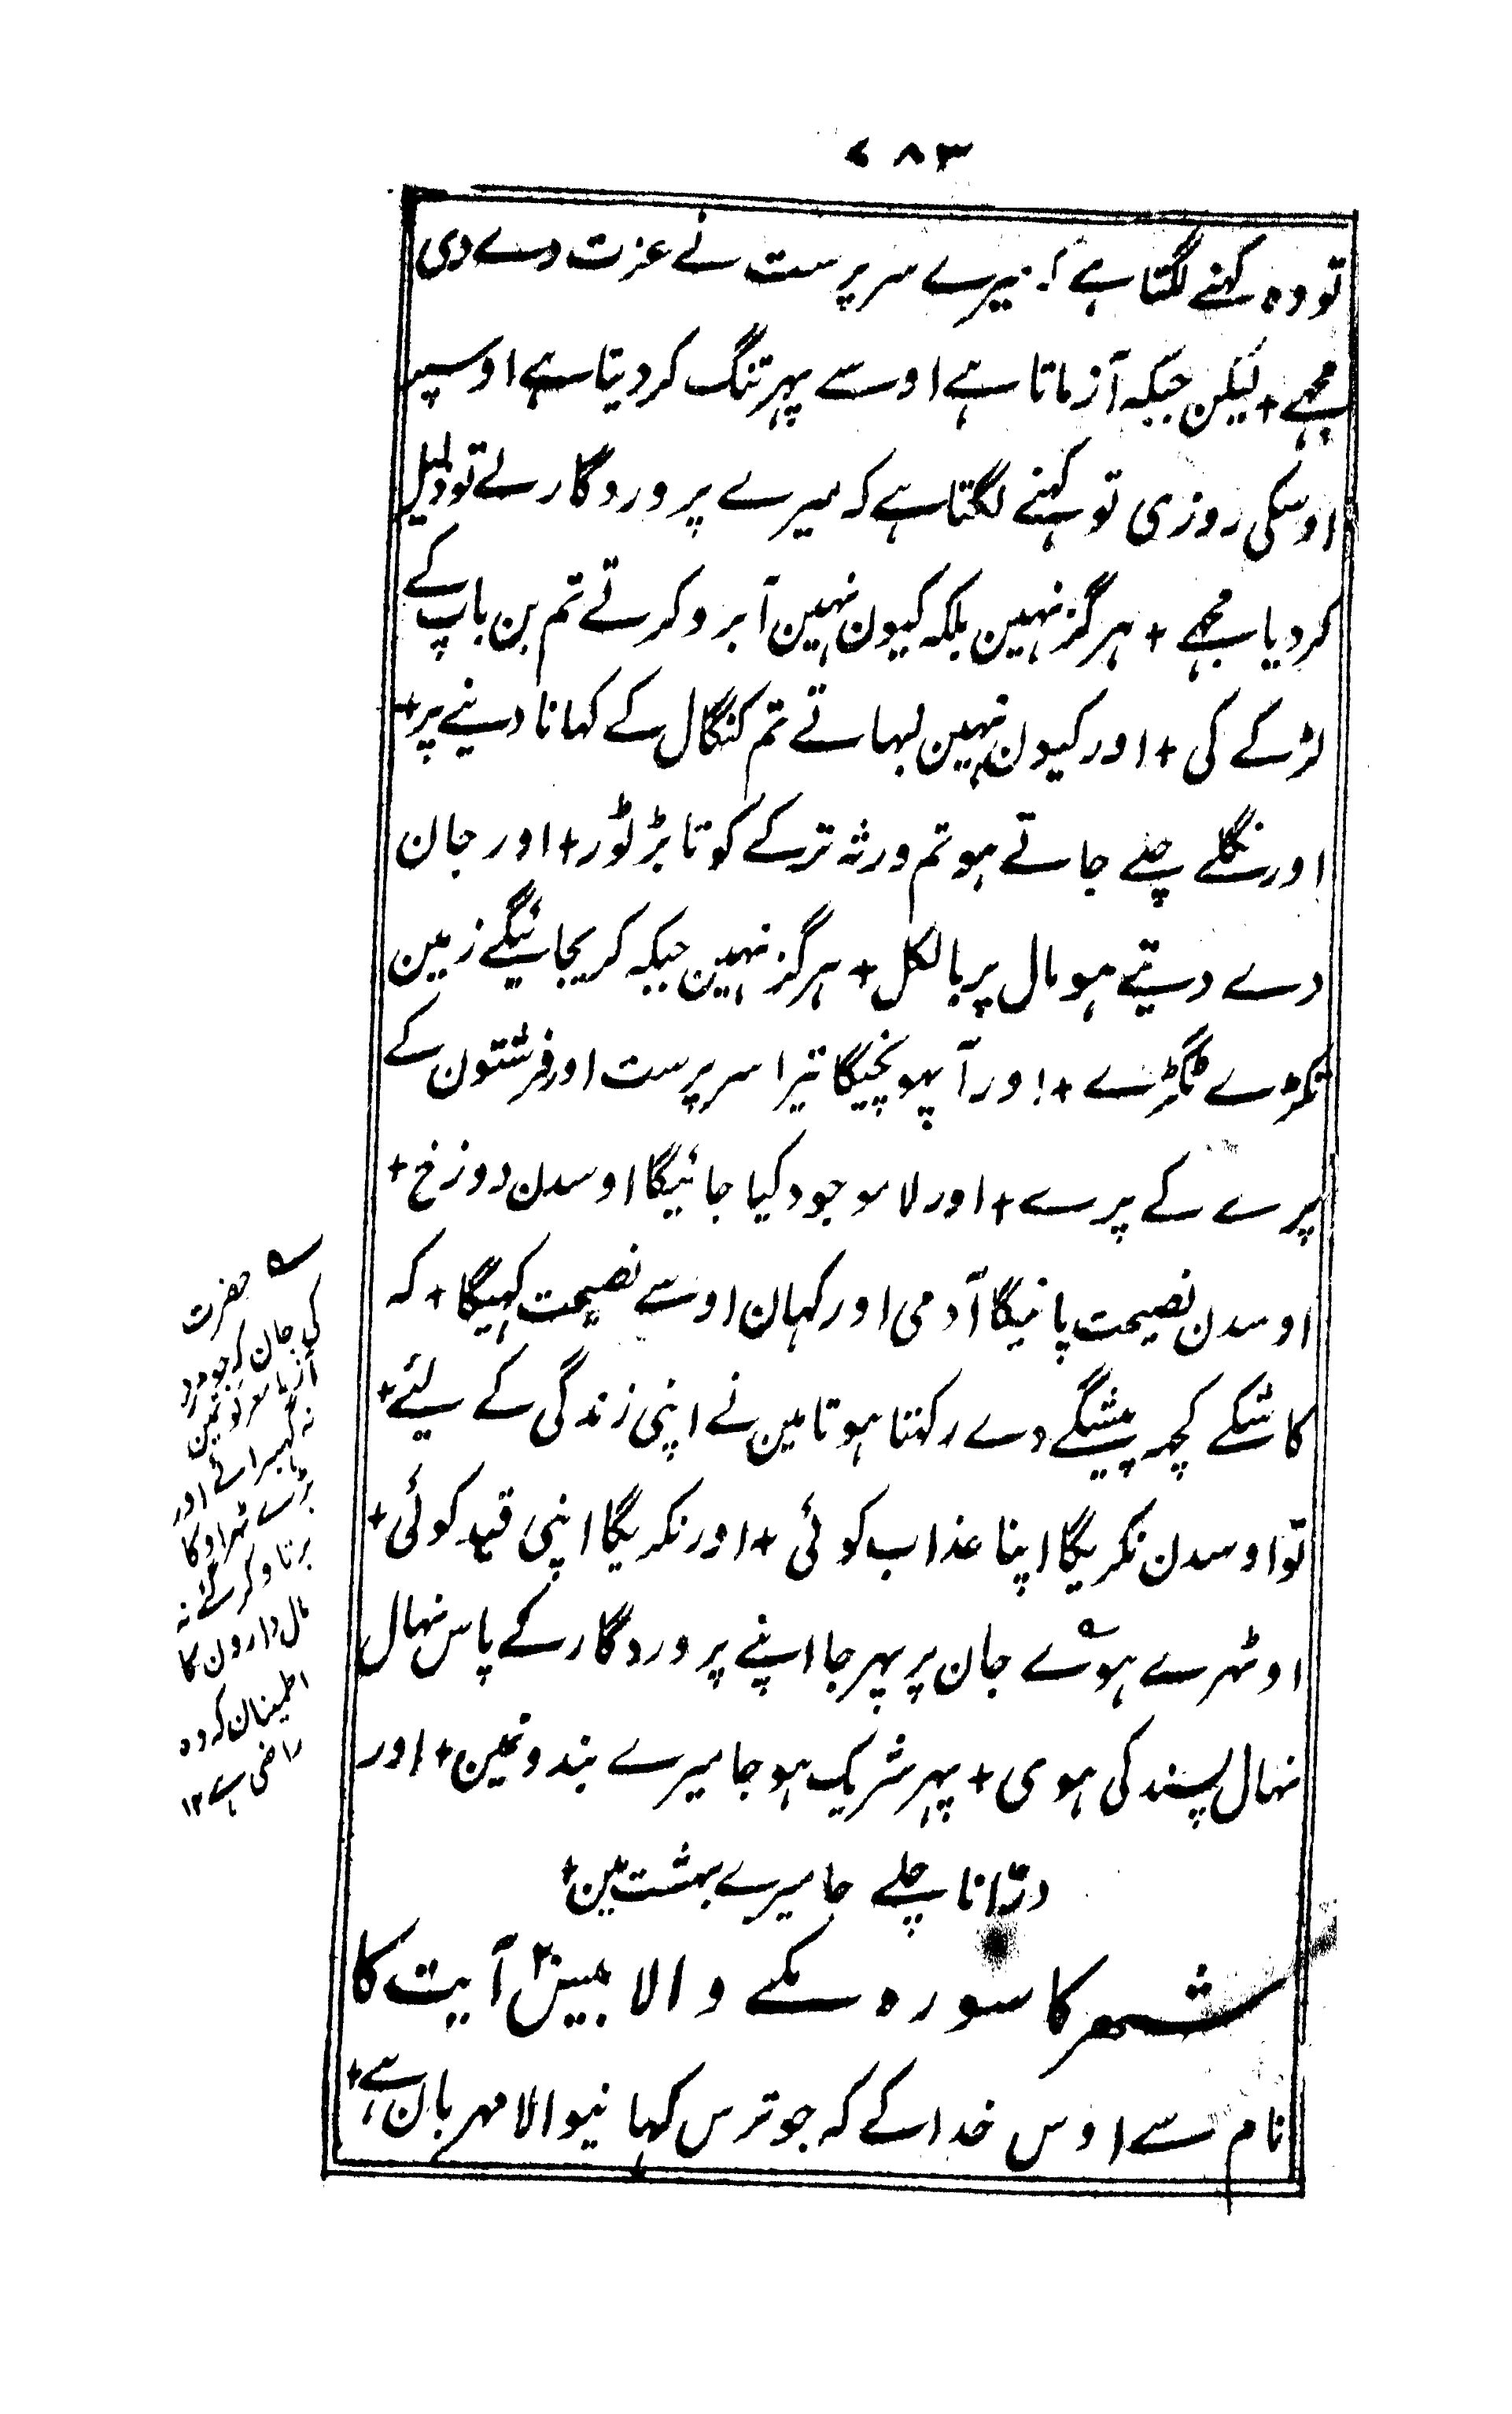 ۷۸۳
تو وہ کہنے لگتا ہے کہ میرے سرپرست نے عزت دے دی
مجہے + لیکن جبکہ آزماتا ہے اوسے پہر تنگ کردیتا ہے اوسپر
اوسکی روزی تو کہنے لگتا ہے کہ میرے پروردگار نے تو ذلیل
کردیا مجہے + ہرگز نہین بلکہ کیون نہین آبرو کرتے تم بن باپ کے
لڑکے کی + اور کیون نہین لبہاتے تم کنگال کے کہانا دینے پر +
اور نگلے چلے جاتے ہو تم ورثہ ترکے کو تابڑ توڑ + اور جان
دے دیتے ہو مال پر بالکل + ہرگز نہین جبکہ کریجائیگی زمین
ٹکڑے ٹکڑے + اور آپہونچیگا تیرا سرپرست اور فرشتون کے
پرے کے پرے + اور لا موجود کیا جائیگا اوسدن دوزخ +
اوسدن نصیحت پائیگا آدمی اور کہان اوسے نصیحت کہیگا + کہ
کاشکے کچہ پیشگے دے رکہتا ہوتا مین نے اپنی زندگی کے لیئے +
تو اوسدن نکریگا اپنا عذاب کوئی + اور نکریگا اپنی قید کوئی +
او ٹہرے ہوئے جان پر پہر جا اپنے پروردگار کے پاس نہال
نہال پسند کی ہوی + پہر شریک ہو جا میرے بندونمین + اور
درّانا چلے جا میرے بہشت مین +
شہر کا سورہ مکے والا بیس ۲۰ آیت کا
نام سے اوس خدا کے کہ جو ترس کہانیوالا مہربان ہے +
؎ حضرت
کی جان کہ جو مرد
آزما معرکونمین
نہ گہبرائے اور
بڑے ٹہراو کا
برتاو کرگئے نہ
مال دارون کا
اطمینان کہ وہ
راضی ہے ۱۲